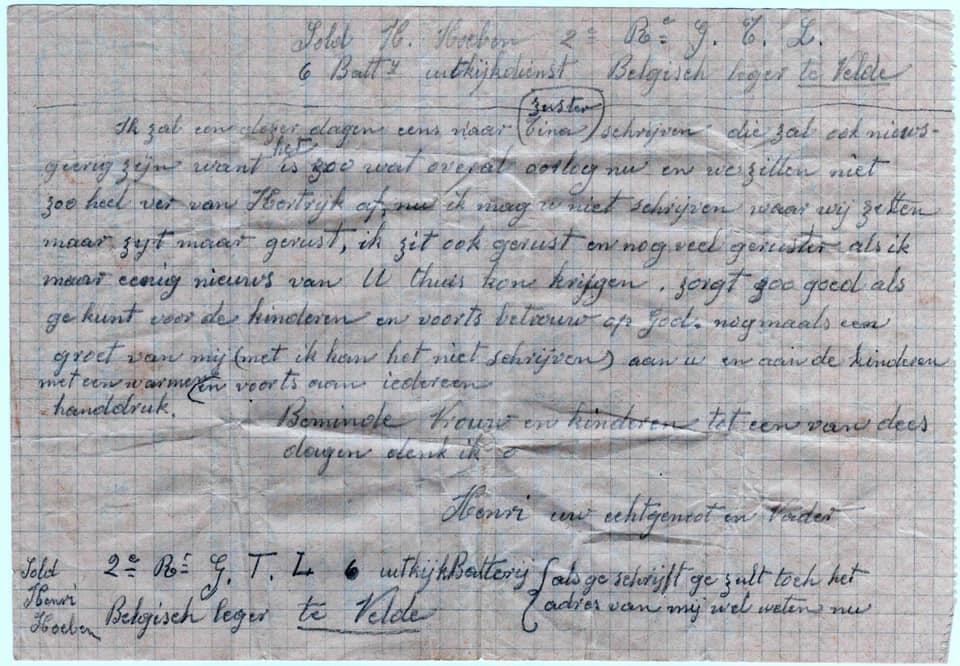 Sold H. Hoeben 2e Re G. T. L.
6 Batty uitkijkdienst Belgisch leger te Velde
zuster
Ik zal een dezer dagen eens naar Tina schrijven die zal ook nieuws-
geerig zijn want het is zoo wat overal oorlog nu en we zitten niet
zoo heel ver van Kortrijk af, nu ik mag u niet schrijven waar wij zitten
maar zyt maar gerust, ik zit ook gerust en nog veel geruster als ik
maar eenig nieuws van U thuis kon krijgen. zorgt zoo goed als
ge kunt voor de kinderen en voorts betrouw op God. nogmaals een
groet van mij (met ik kan het niet schrijven) aan u en aan de kinderen
met een warmen (en voorts aan iedereen
handdruk.
Beminde Vrouw en kinderen tot een van dees
dagen denk ik
Henri uw echtgenoot en Vader
Sold Henri Hoeben
2e Re G. T. L 6 uitkijkBatterij
Belgisch leger te Velde
(als ge schrijft ge zult toch het
adres van mij wel weten nu